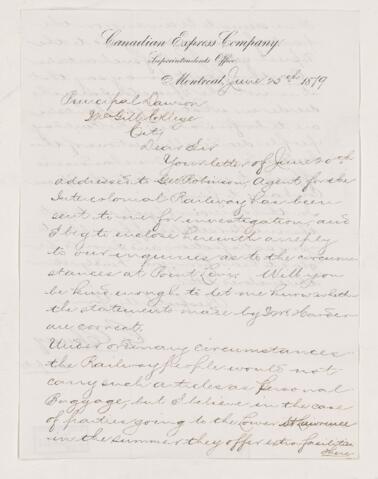 Canadian Express Company.
Superintendents Office
Montreal, June 25th 1879
Principal Dawson
McGill College
City
Dear Sir
Your letter of June 20th
addressed to Geo Robinson, Agent for the
Intercolonial Railway, has been
sent to me for investigation, and
I beg to enclose herewith a reply
to our inquiries as to the circum
stances at Point Levis. Will you
be kind enough to let me know whether
the statements made by Mr
are correct.
Under ordinary circumstances
the Railway People would not
carry such articles as Personal
Baggage, but I believe in the case
of parties going to the Lower St Lawrence
in the summer they offer extra facilities
there